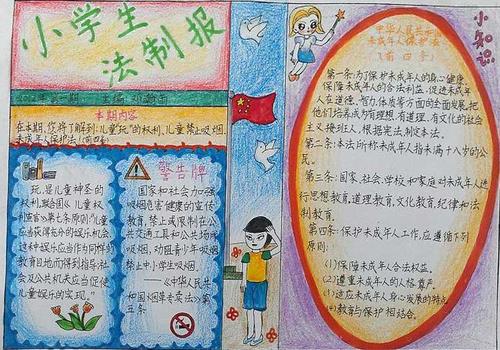 小学生
法制报
本期内容
在本期,您将了解到:"儿童玩"的权利、儿童禁止吸烟
未成年人保护法(前四条)
玩,是儿童神圣的
权利,联合国《儿童权
利宣言》第七条原则:"儿童
应当获得名外的娱乐机会,
这种娱乐应当作为同样的
教育目地而得到指导;社
会及公共机关应当促使
儿童娱乐的实现。"
警告牌
国家和社会加强
吸烟危害健康的宣传
教育,禁止或限制在公
共交通工具和公共场所
吸烟,劝阻青少年吸烟,
禁止中小学生吸烟。
——《中华人民共
和国烟草专卖法》第
五条
小知识
中华人民共和国
未成年人保护法
(前四条)
第一条:为了保护未成年人的身心健康,
保障未成年人的合法权益,促进未成年
人在道德、智力、体质等方面的全面发展,把
他们培养成为有理想、有道理、有文化的社会
主义接班人,根据宪法,制定本法。
第二条:本法所称未成年人指未满十八岁的公
民。
第三条:国家、社会、学校和家庭对未成年人进
行思想教育,道理教育,文化教育,纪律和法
制教育。
第四条:保护未成年人工作,应遵循下列
原则:
(1)保障未成年人合法权益。
(2)尊重未成年人的人格尊严。
(3)适应未成年人身心发展的特点
(4)教育与保护相结合。